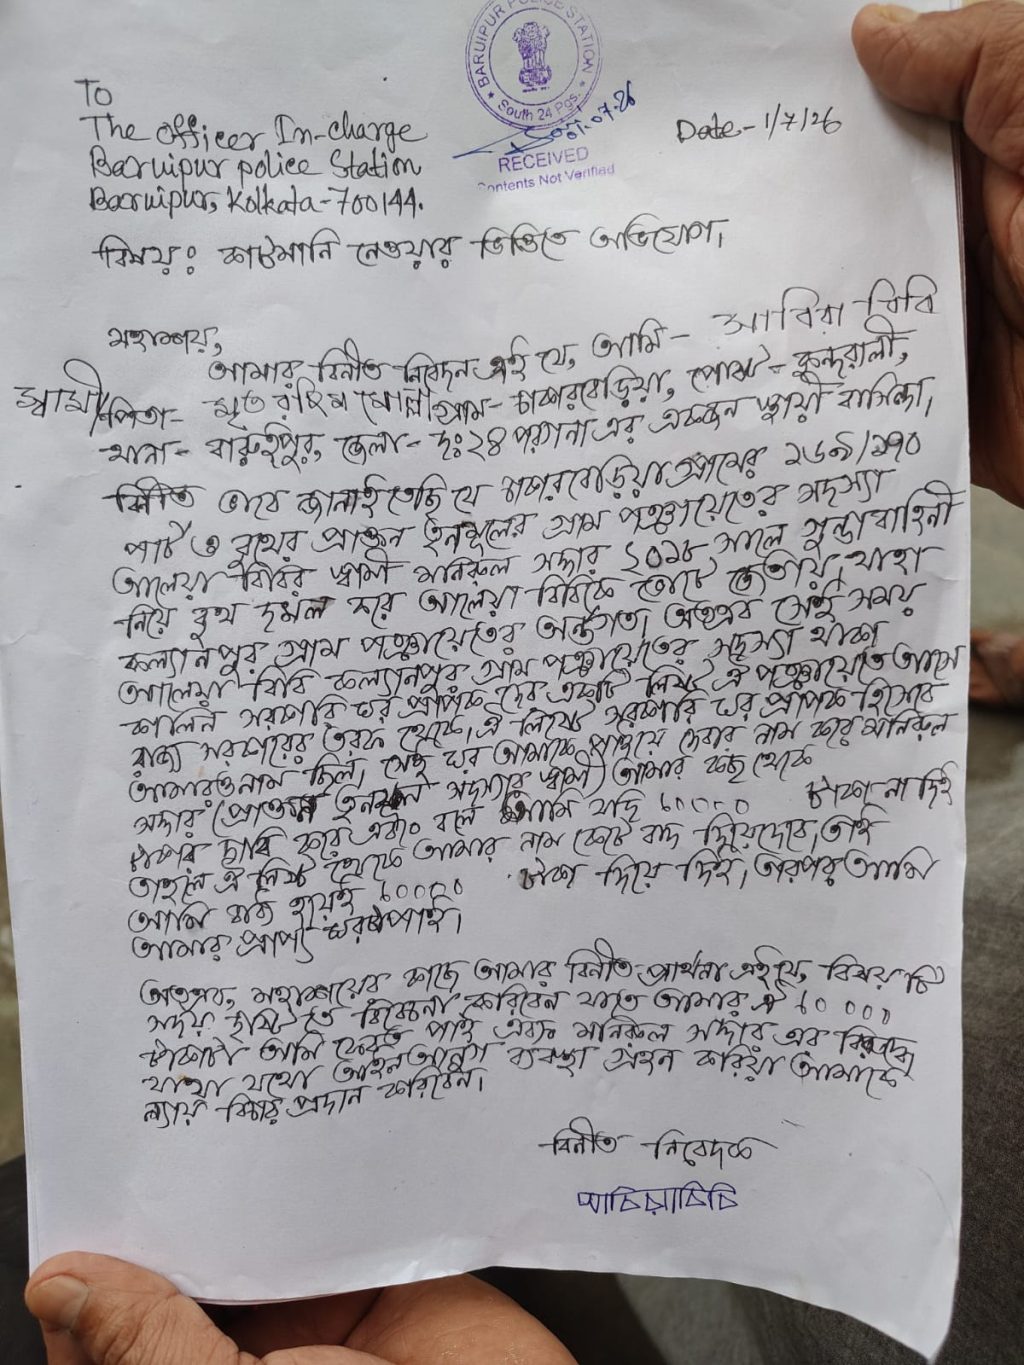 BARUIPUR POLICE STATION
South 24 Pgs.
01.07.26
RECEIVED
Contents Not Verified
To
The Officer In-charge
Baruipur police Station
Baruipur, Kolkata-700144.
Date - 1/7/26
বিষয়ঃ কাটমানি নেওয়ার ভিত্তিতে অভিযোগ।
মহাশয়,
আমার বিনীত নিবেদন এই যে, আমি - আবিরা বিবি
স্বামী/পিতা- মৃত রহিম মোল্লা গ্রাম- চাকারবেড়িয়া, পোস্ট - কুন্দরালী,
থানা - বারুইপুর, জেলা - দঃ২৪ পরগনা এর একজন স্থায়ী বাসিন্দা।
বিনীত ভাবে জানাইতেছি যে গ্রামের ২৬৯/২৭০
পার্ট ও বুথের প্রাক্তন তৃনমূলের গ্রাম পঞ্চায়েতের সদস্যা
আলেয়া বিবির স্বামী মনিরুল সদ্দার ২০১৮ সালে গুন্ডাবাহিনী
নিয়ে বুথ দখল করে আলেয়া বিবিকে ভোটে জেতায়, যাহা
কল্যানপুর গ্রাম পঞ্চায়েতের অন্তর্গত। অতএব সেই সময়
আলেয়া বিবি কল্যানপুর গ্রাম পঞ্চায়েতের সদস্যা থাকা
কালিন সরকারি ঘর প্রাপক দের একটি লিস্ট ঐ পঞ্চায়েতে আসে
রাজ্য সরকারের তরফ থেকে, ঐ লিস্টে সরকারি ঘর প্রাপক হিসেবে
আমারও নাম ছিল। সেই ঘর আমাকে পাইয়ে দেবার নাম করে মনিরুল
সদ্দার (প্রাক্তন তৃনমূল সদস্যার স্বামী) আমার কাছ থেকে
টাকার দাবি করে এবং বলে আমি যদি ৮০০০০ টাকা না দিই
তাহলে ঐ লিস্ট থেকে আমার নাম কেটে বাদ দিয়েদেবে, তাই
আমি বাধ্য হয়েই ৮০০০০ টাকা দিয়ে দিই। তারপর আমি
আমার প্রাপ্য ঘরটা পাই।
অতএব, মহাশয়ের কাছে আমার বিনীত প্রার্থনা এই যে, বিষয় টি
সদয় দৃষ্টি তে বিবেচনা করিবেন যাতে আমার ঐ ৮০০০০
টাকাটা আমি ফেরত পাই এবং মনিরুল সদ্দার এর বিরুদ্ধে
যথা যথো আইন আনুগ ব্যবস্থা গ্রহন করিয়া আমাকে
ন্যায় বিচার প্রদান করিবেন।
বিনীত নিবেদক